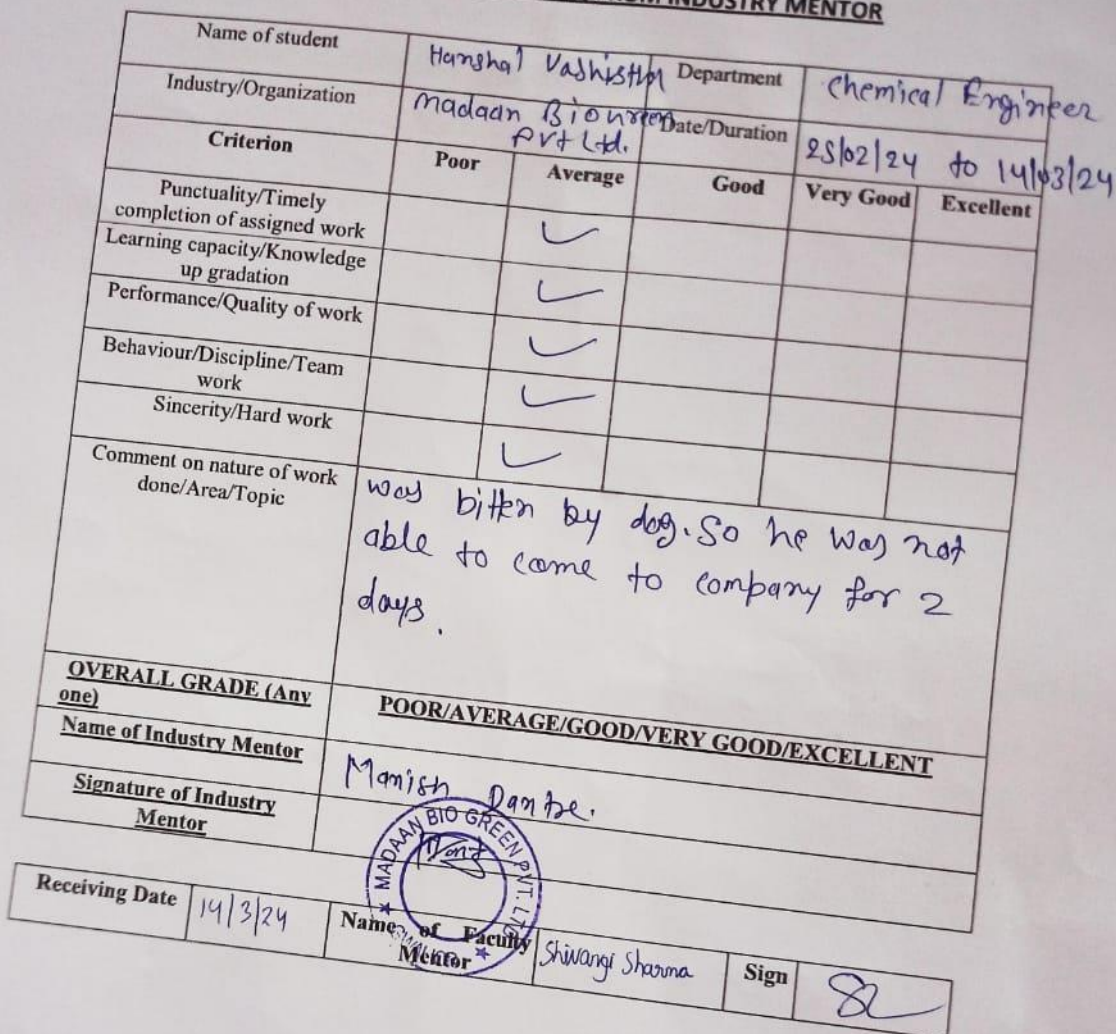 INDUSTRY MENTOR
Name of student
Harshal Vashistha
Department
Chemical Engineer
Industry/Organization
Madaan
Pvt Ltd.
Date/Duration
25/02/24 to 14/03/24
Criterion
Poor
Average
Good
Very Good
Excellent
Punctuality/Timely
completion of assigned work
Learning capacity/Knowledge
up gradation
Performance/Quality of work
Behaviour/Discipline/Team
work
Sincerity/Hard work
Comment on nature of work
done/Area/Topic
was bitten by dog. So he was not
able to come to company for 2
days.
OVERALL GRADE (Any
one)
POOR/AVERAGE/GOOD/VERY GOOD/EXCELLENT
Name of Industry Mentor
Manish
Signature of Industry
Mentor
MADAAN BIO GREEN PVT. LTD
Receiving Date
14/3/24
Name of Faculty
Mentor
Shivangi Sharma
Sign